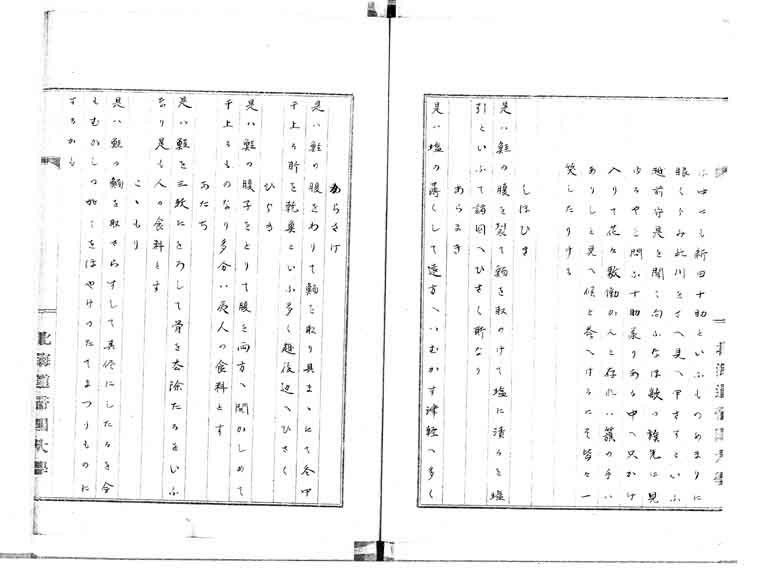 ふ中にも新田十助といふものあまりに
眼くらみ此川をさへ見へ申さすといふ
越前守是を聞て向ふなは敵の旗先に見
ゆるやと問ふ十助承りある中へ只かけ
入りて花々敷働かんと存れハ籏の手ハ
ありしと見へ候と答へけるにそ皆々一
笑したりける
しほひき
是ハ鮭の腹を裂て鯛を取のけて塩に漬るを塩
引といふて諸国へひさく所なり
あらまき
是ハ塩の薄くして遠方へハむかす津軽へ多く
からさけ
是ハ鮭の腹をわりて鯛を取り其まゝにて冬中
干上る所を乾巣といふ多く越後辺へひさく
ひらき
是ハ鮭の腹子をとりて腹を両方へ開かしめて
干上るものなり多分ハ夷人の食料とす
あたち
是ハ鮭を三枚におろして骨を去除たるをいふ
なり是も人の食料とす
こゝもり
是ハ鮭の鯛を取さらすして其侭にしたるを今
もむかしの如くをほやけへたてまつりものに
するから
北海道帝国大學
北海道帝国大學